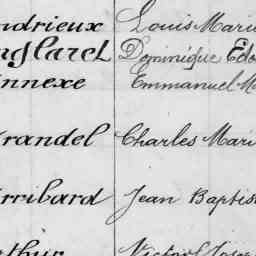 ndrieux Louis Mari
nglarel Dominique Edo
nnexe Emmanuel M
randel Charles Mari
rribard Jean Baptis
rthur Victor Jose